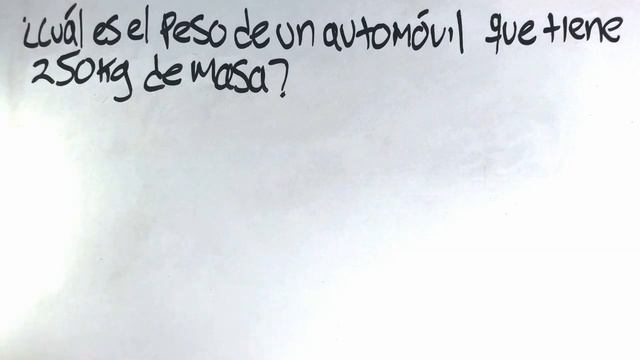 ¿Cuál es el Peso de un automóvil que tiene
250kg de masa?